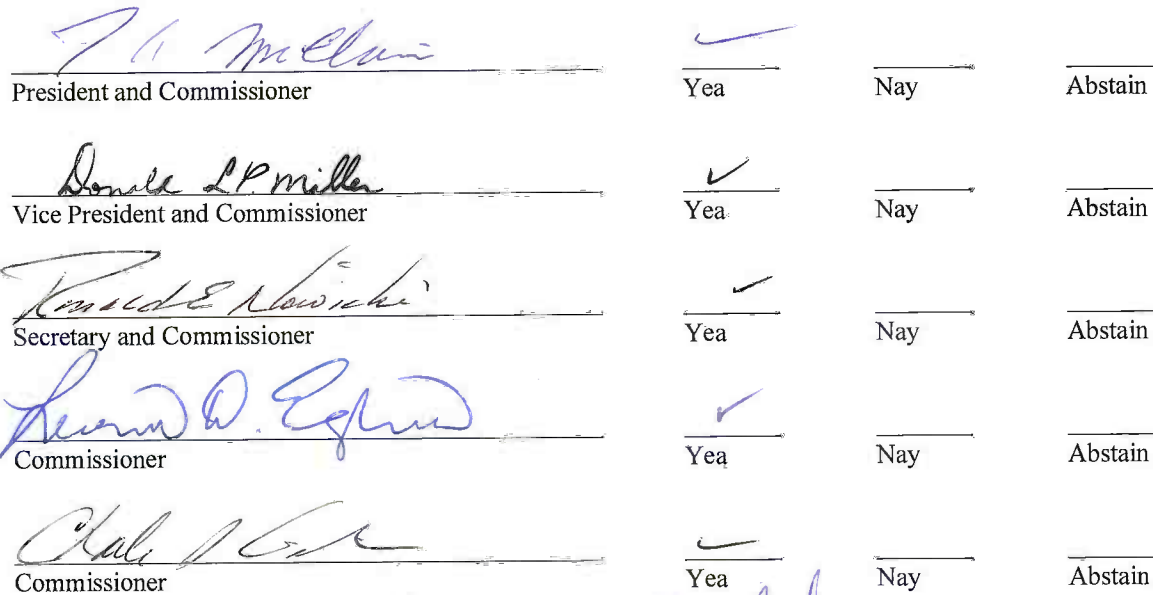 ✓
President and Commissioner Yea Nay Abstain
Donald L.P. Miller ✓
Vice President and Commissioner Yea Nay Abstain
Ronald E Nowicki ✓
Secretary and Commissioner Yea Nay Abstain
D. ✓
Commissioner Yea Nay Abstain
✓
Commissioner Yea Nay Abstain